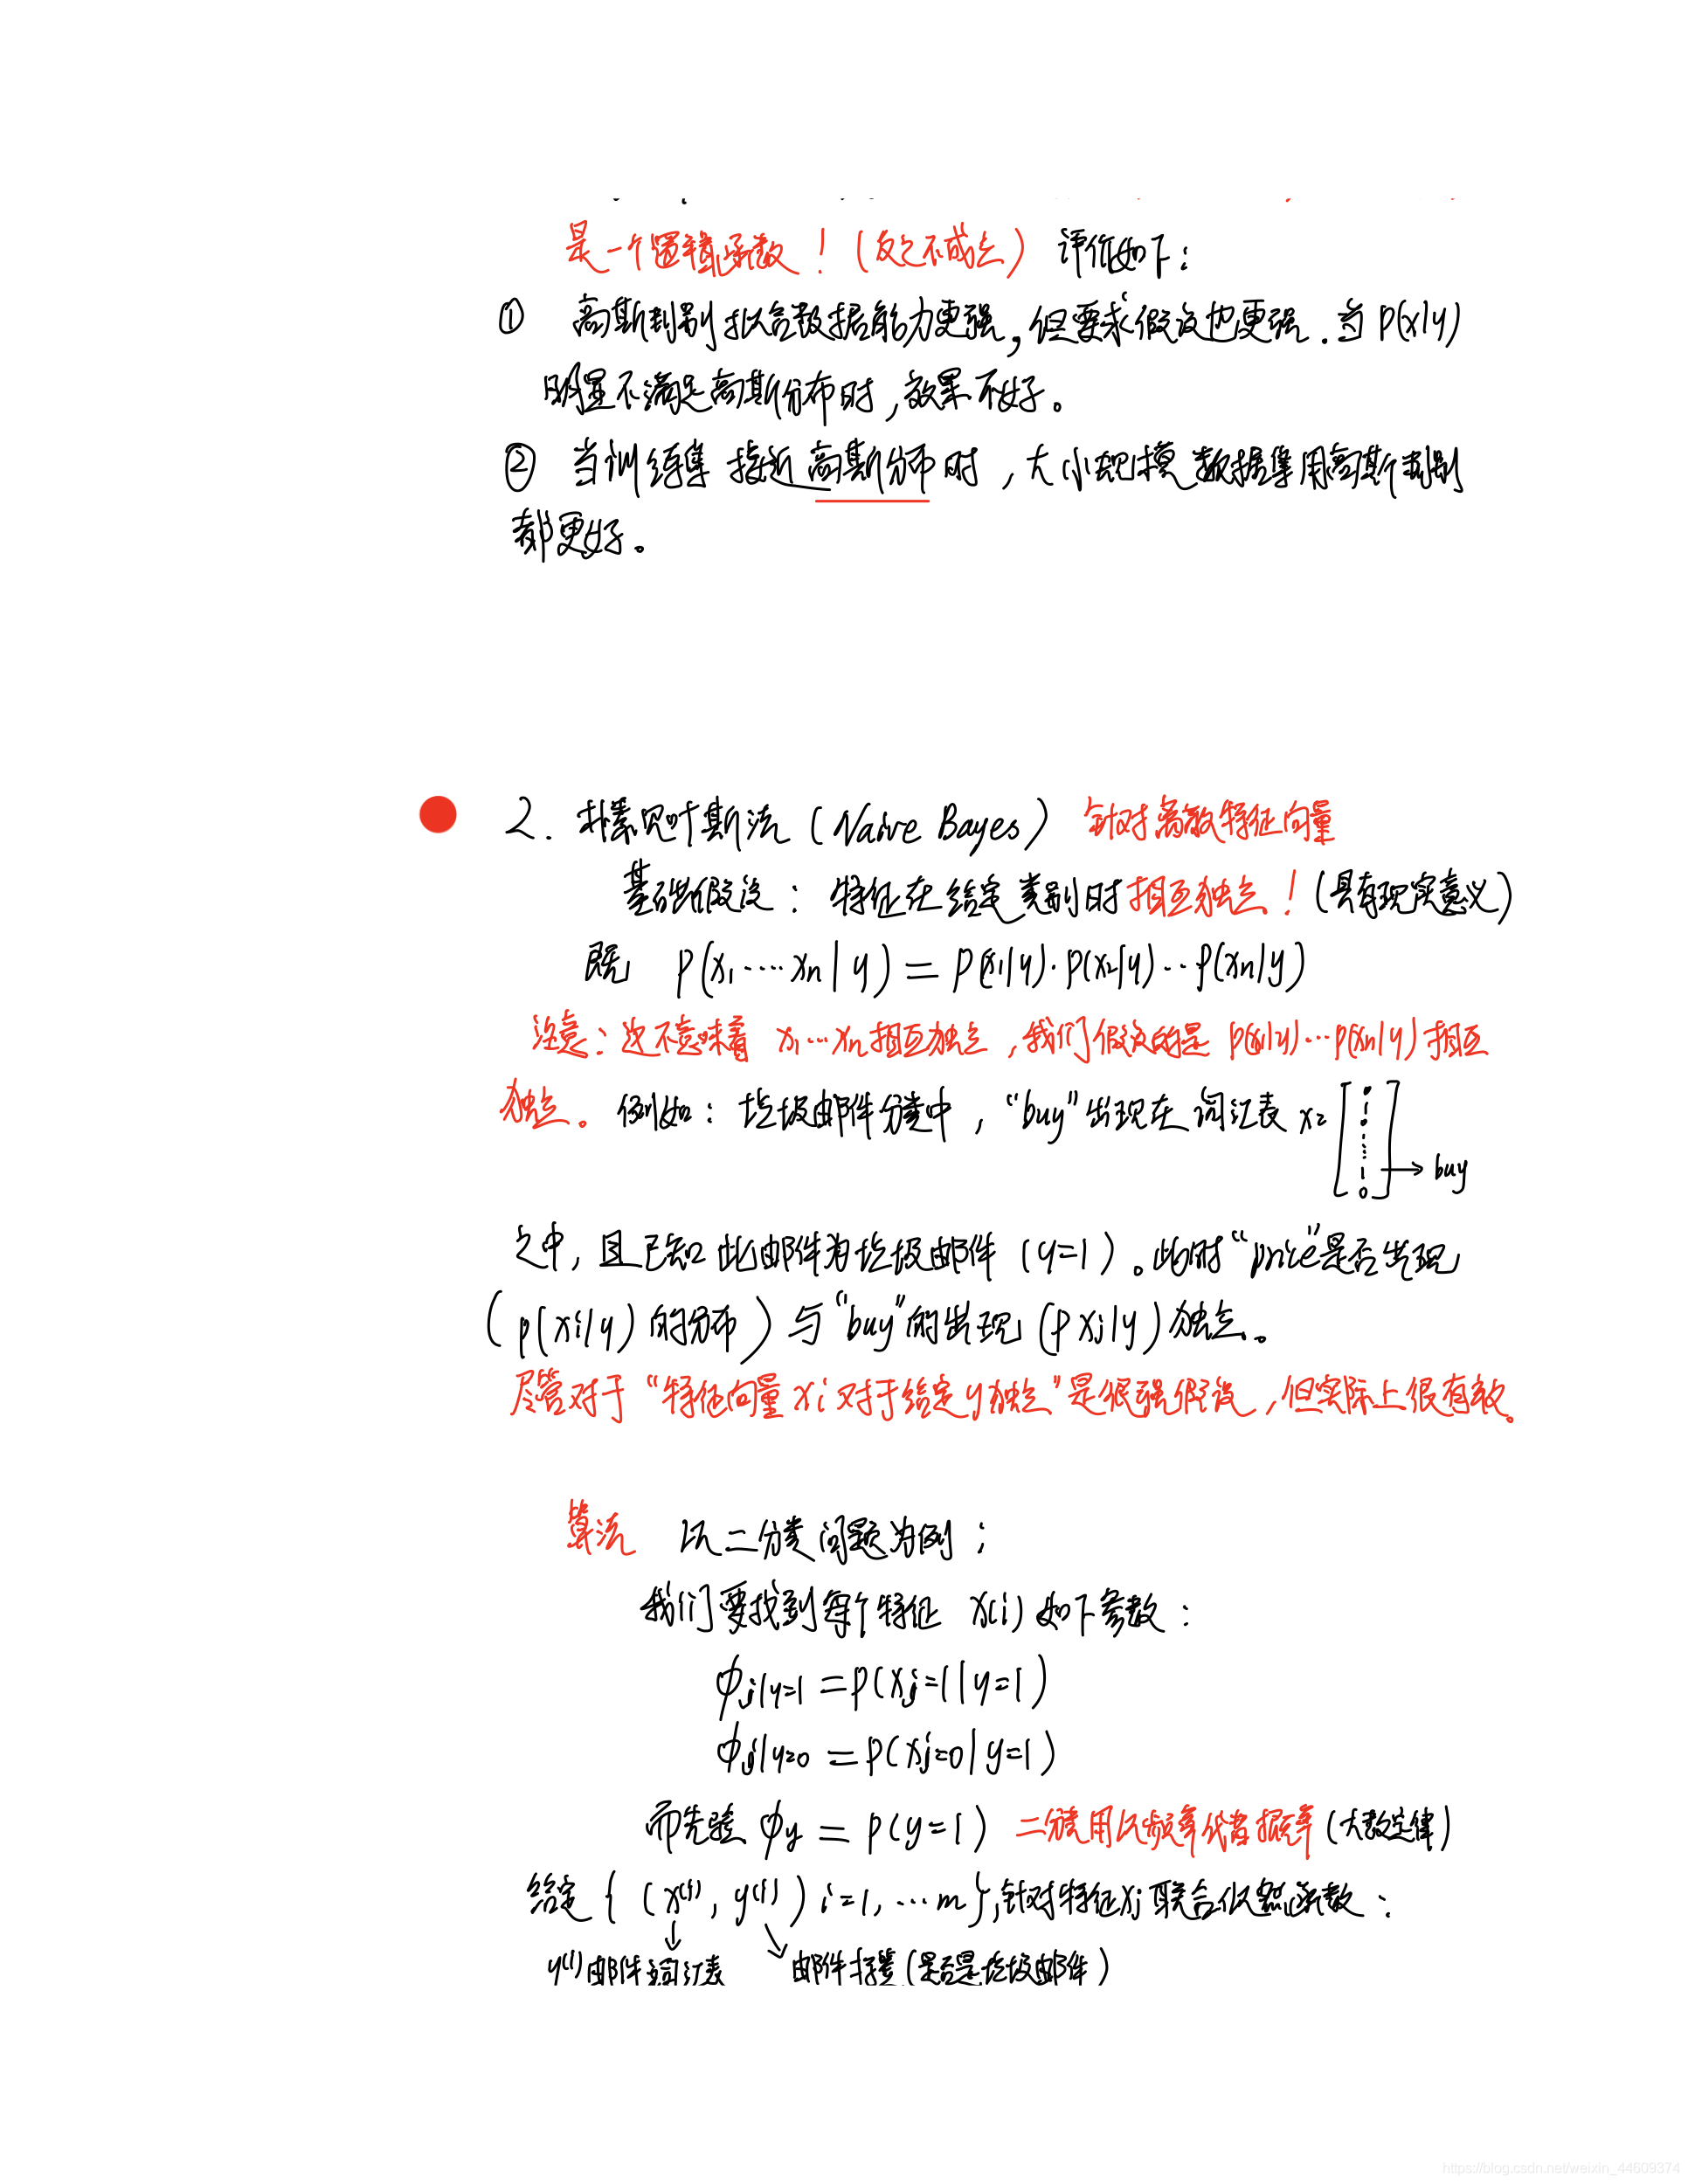 是一个逻辑函数！（反之不成立） 评价如下：
① 高斯判别拟合数据能力更强，但要求假设也更强．当 p(x|y)
明显不满足高斯分布时，效果不好。
② 当训练集接近高斯分布时，大小规模数据集用高斯判别
都更好。
2. 朴素贝叶斯法（Naive Bayes） 针对离散特征向量
基础假设：特征在给定类别时相互独立！（具有现实意义）
既 p(x₁ ····· xn | y) = p(x₁|y)·p(x₂|y)···p(xn|y)
注意：这不意味着 x₁···xn相互独立，我们假设的是 p(x₁|y)···p(xn|y)相互
独立。例如：垃圾邮件分类中，“buy”出现在词汇表 x=
1
0
buy
之中，且已知此邮件为垃圾邮件（y=1）。此时“price”是否出现
（p(xi|y)的分布）与“buy”的出现（p xj|y）独立。
尽管对于“特征向量 xi 对于给定y独立”是很强假设，但实际上很有效。
算法 以二分类问题为例；
我们要找到每个特征 x(i) 如下参数：
φj|y=1 = p(xj=1|y=1)
φj|y=0 = p(xj=0|y=1)
而先验 φy = p(y=1) 二分类用以频率代替概率（大数定律）
给定{ (x⁽ⁱ⁾, y⁽ⁱ⁾) i=1, ···m },针对特征xj联合似然函数：
y⁽ⁱ⁾邮件词汇表 邮件标签（是否是垃圾邮件）
https://blog.csdn.net/weixin_44609374